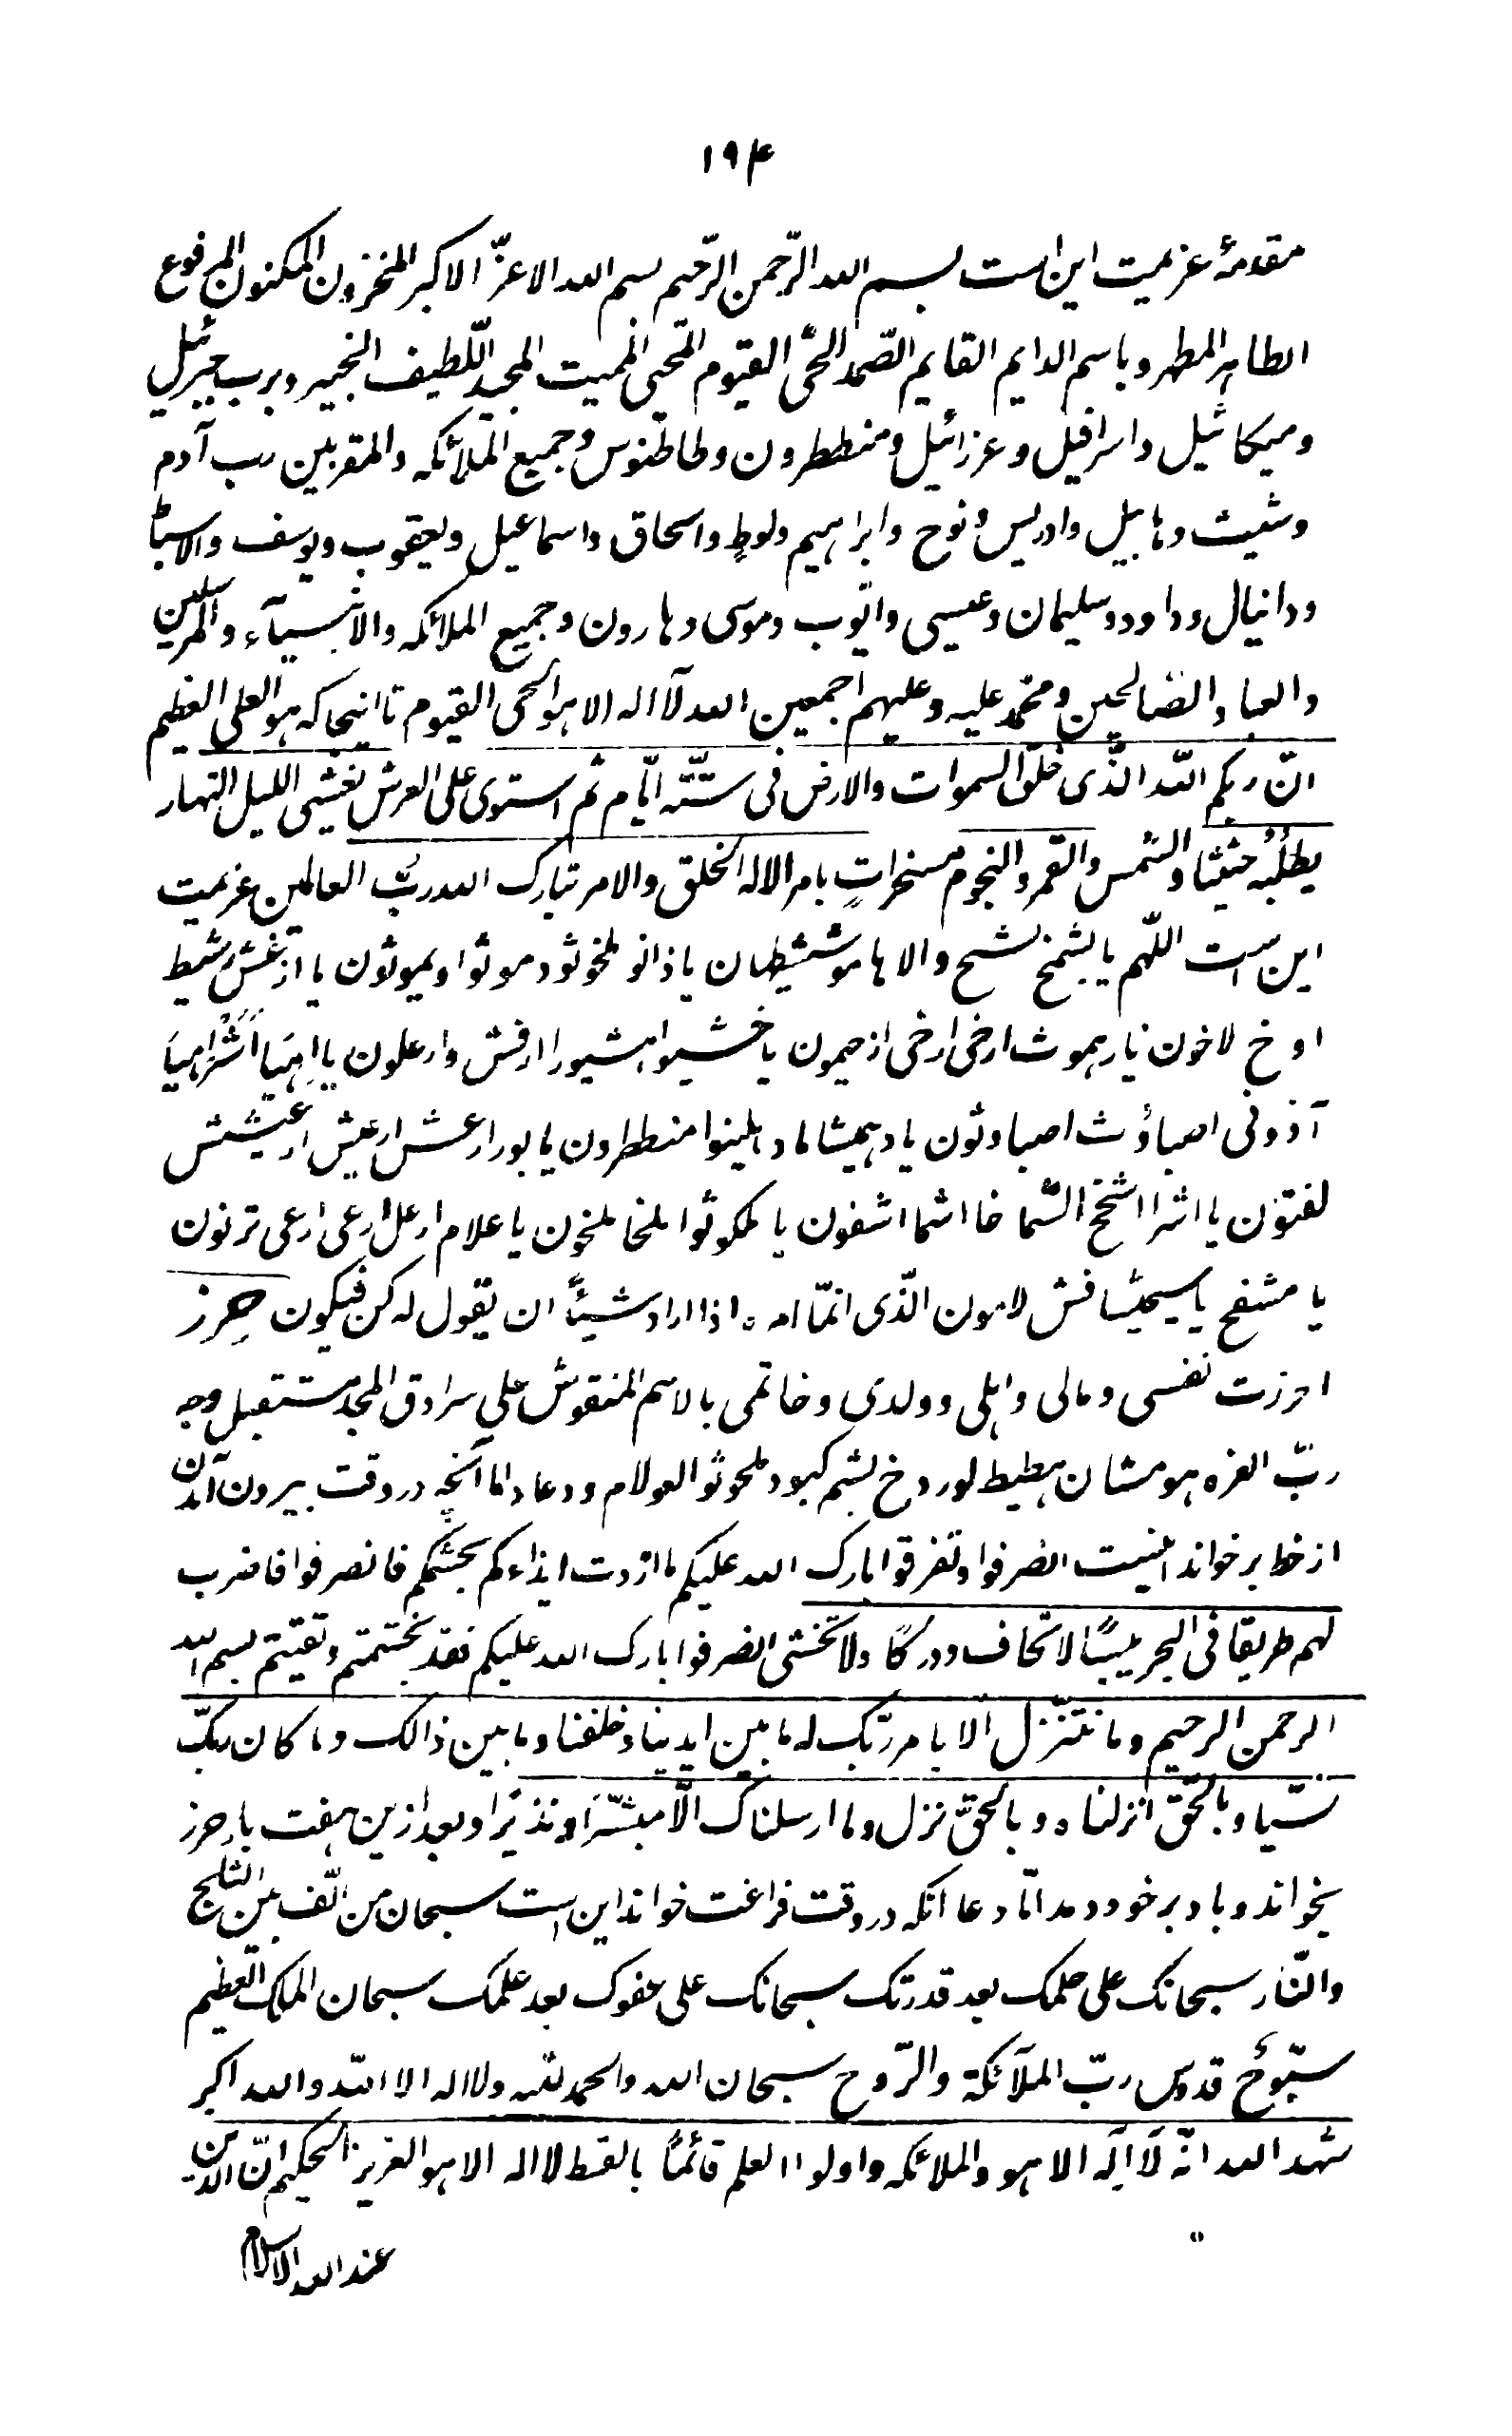 ۱۹۴
مقدمۀ عزیمت این است بسم الله الرّحمن الرّحیم بسم الله الاعزّ الاکبر المخزون المکنون المرفوع
الطاهر المطهر و باسم الدایم القایم الصّمد الحیّ القیّوم المحیی الممیت المجید اللّطیف الخبیر و برب جبرئیل
و میکائیل و اسرافیل و عزرائیل و منططرون و طاطنوس و جمیع الملائکه و المقربین رب آدم
و شیث و هابیل و ادریس و نوح و ابراهیم و لوطٍ و اسحاق و اسماعیل و یعقوب و یوسف و الاسباط
و دانیال و داود و سلیمان و عیسی و ایّوب و موسی و هارون و جمیع الملائکه و الانبیآء و المرسلین
و العباد الصّالحین و محمّد علیه و علیهم اجمعین الله لآ اله الا هو الحی القیوم تا اینجا که هو العلی العظیم
انّ ربکم اللّه الّذی خلق السموات و الارض فی ستّته ایّام ثم استوی علی العرش یغشی اللیل النهار
یطلُبُه حثیثا و الشّمس و القمر و النجوم مسخراتٍ بامر الا له الخلق و الامر تبارک الله ربّ العالمین عزیمت
این است اللّهم یا بشمخ شمخ و الاهاموشیطان یا ذانو ملخوثو دموثوا ویموثون یا ارغش شیط
اوخ لاخون یا رهموث ارخی ارخی ازحیمون یا خشیوا هشیورا ارفش دارعلون یا اهیا اشراهیا
آذونی اصباؤث اصباوثون یا دهمیشا ماد هلینوا منططرون یا بورارعش ارعیش ارعیشش
لفتون یا اشرا اشمخ الشّماخا اشما اشفون یا ملکوثوا ملخا ملخون یا علام ارعل ارعی ارعی ترنون
یا مشفح یا فش لامون الّذی انمّا امره اذا اراد شیئاً ان یقول له کن فیکون حِرز
احرزت نفسی و مالی و اهلی و ولدی و خاتمی بالاسم المنقوش علی سرادق المجد مستقبل وجه
ربّ العزه هومشان هطیط لوردخ بشم کبود ملحوثو العولام و دعاد اما آنچه در وقت بیرون آمدن
از خط برخواند اینست انصرفوا و تفرقوا بارک الله علیکم ما اردت ایذاءکم بجشکم فانصرفوا فاضرب
لهم طریقا فی البحر یبسًا لا تخاف و درکًا و لا تخشی انصرفوا بارک الله علیکم فقد بخشتم و تقیتم بسم الله
الرحمن الرحیم و ما نتنزّل الّا بامر ربّک له ما بین ایدینا و خلفنا و ما بین ذالک و ما کان ربکّ
نسّیا و بالحقّ انزلناه و بالحقّ نزل و ما ارسلناک الّا مبشّرًا و نذیرًا و بعد ازین هفت بار حرز
بخواند و باد بر خود دمد امّا دعا انکه در وقت فراغت خواند این است سبحان من الّف بین الثلج
و النّار سبحانک علی حلمک بعد قدرتک سبحانک علی عفوک بعد علمک سبحان الملک العظیم
سبّوحٌ قدوس ربّ الملآئکة و الرّوح سبحان الله و الحمد لله و لا اله الا اللّه و الله اکبر
شهد الله انّه لآ اِله الا هو و الملائکه و اولوا العلم قائمًا بالقسط لا اله الا هو العزیز الحکیم انّ الدّین
عند الله الاسلام